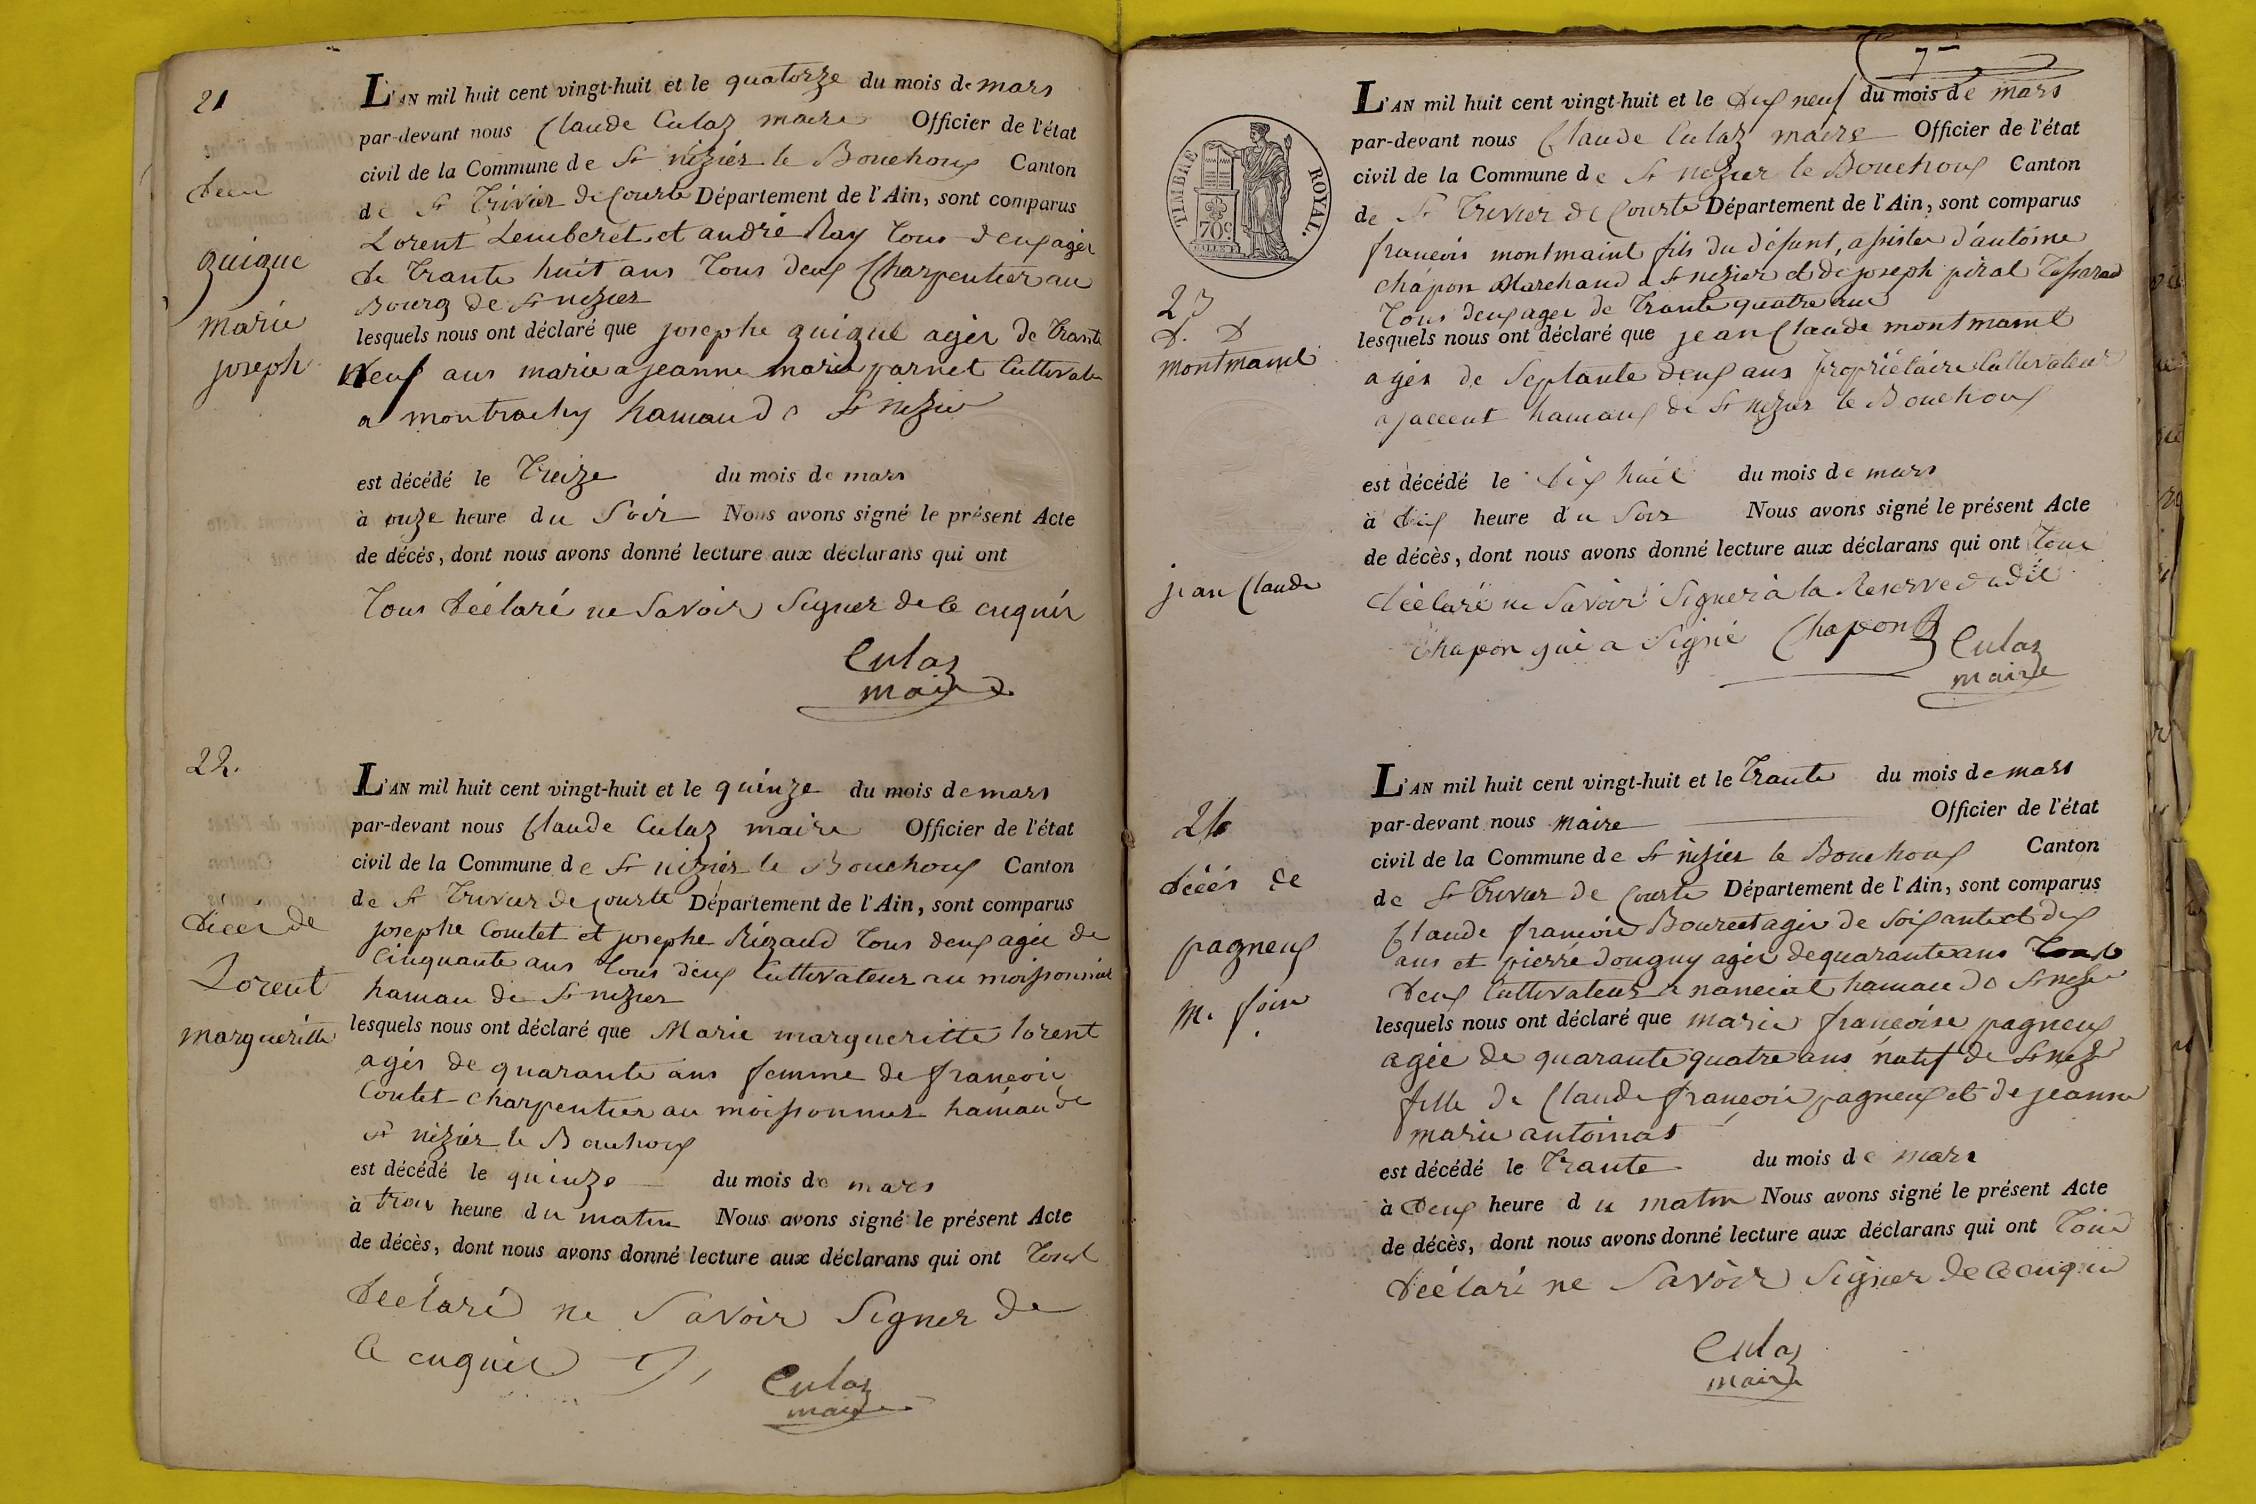 21
L'AN mil huit cent vingt-huit et le quatorze du mois de mars
par-devant nous Claude Culaz maire Officier de l'état
civil de la Commune de St nizier le Bouchoux Canton
de St Trivier de Courte Département de l'Ain, sont comparus
Lorent Lemberet et andré Ray Tous deux agér
de Trante huit ans Tous deux Charpentier au
Bourg de St nizier
lesquels nous ont déclaré que josephe guigue agér de Trante
Neuf ans marie a jeanne marie parnet Cultivateur
a montrachy hamau de St nizier
est décédé le Treize du mois de mars
à onze heure du Soir Nous avons signé le présent Acte
de décés, dont nous avons donné lecture aux déclarans qui ont
Tous déclaré ne Savoir Signer de ce enquir
Culaz
maire
guigue
marie
joseph
22.
L'AN mil huit cent vingt-huit et le quinze du mois de mars
par-devant nous Claude Culaz maire Officier de l'état
civil de la Commune de St nizier le Bouchoux Canton
de St Trivier de Courte Département de l'Ain, sont comparus
josephe Contet et josephe Rigaud Tous deux agée de
Cinquante ans Tous deux Cultivateur au moissonnier
hamau de St nizier
lesquels nous ont déclaré que Marie margueritte lorent
agér de quarante ans femme de françois
Contet Charpentier au moissonnier hamau de
St nizier le Bouchoux
est décédé le quinze du mois de mars
à trois heure du matin Nous avons signé le présent Acte
de décès, dont nous avons donné lecture aux déclarans qui ont Tous
déclaré ne Savoir Signer de
Ce enquir
Culaz
maire
décés de
Lorent
margueritte
7
TIMBRE ROYAL.
70c
L'AN mil huit cent vingt-huit et le dix neuf du mois de mars
par-devant nous Claude Culaz maire Officier de l'état
civil de la Commune de St nizier le Bouchoux Canton
de St Trivier de Courte Département de l'Ain, sont comparus
francois montmaint fils du défunt, assister d'antoine
Chapon Marchand a St nizier et de joseph piral
Tous deux ager de Trante quatre ans
lesquels nous ont déclaré que jean Claude montmaint
agér de Septante deux ans propriétaire Cultivateur
a jaccent hamaux de St nizier le Bouchoux
est décédé le dix huit du mois de mars
à dix heure du Soir Nous avons signé le présent Acte
de décès, dont nous avons donné lecture aux déclarans qui ont Tous
déclaré ne Savoir Signer à la Reserve dudit
Chapon qui a Signé Chapon
Culaz
maire
23
D. D
montmaint
jean Claude
24
L'AN mil huit cent vingt-huit et le Trante du mois de mars
par-devant nous maire Officier de l'état
civil de la Commune de St nizier le Bouchoux Canton
de St Trivier de Courte Département de l'Ain, sont comparus
Claude francois agér de Soixante et dix
ans et pierre dougny agér de quarante ans Tous
deux Cultivateur a nanciat hamau de St nizier
lesquels nous ont déclaré que marie francoise pagneux
agée de quarante quatre ans natif de St nizier
fille de Claude françois pagneux et de jeanne
marie antoinat
est décédé le Trante du mois de mars
à deux heure du matin Nous avons signé le présent Acte
de décès, dont nous avons donné lecture aux déclarans qui ont Tous
déclaré ne Savoir Signer de ce enquir
Culaz
maire
décés de
pagneux